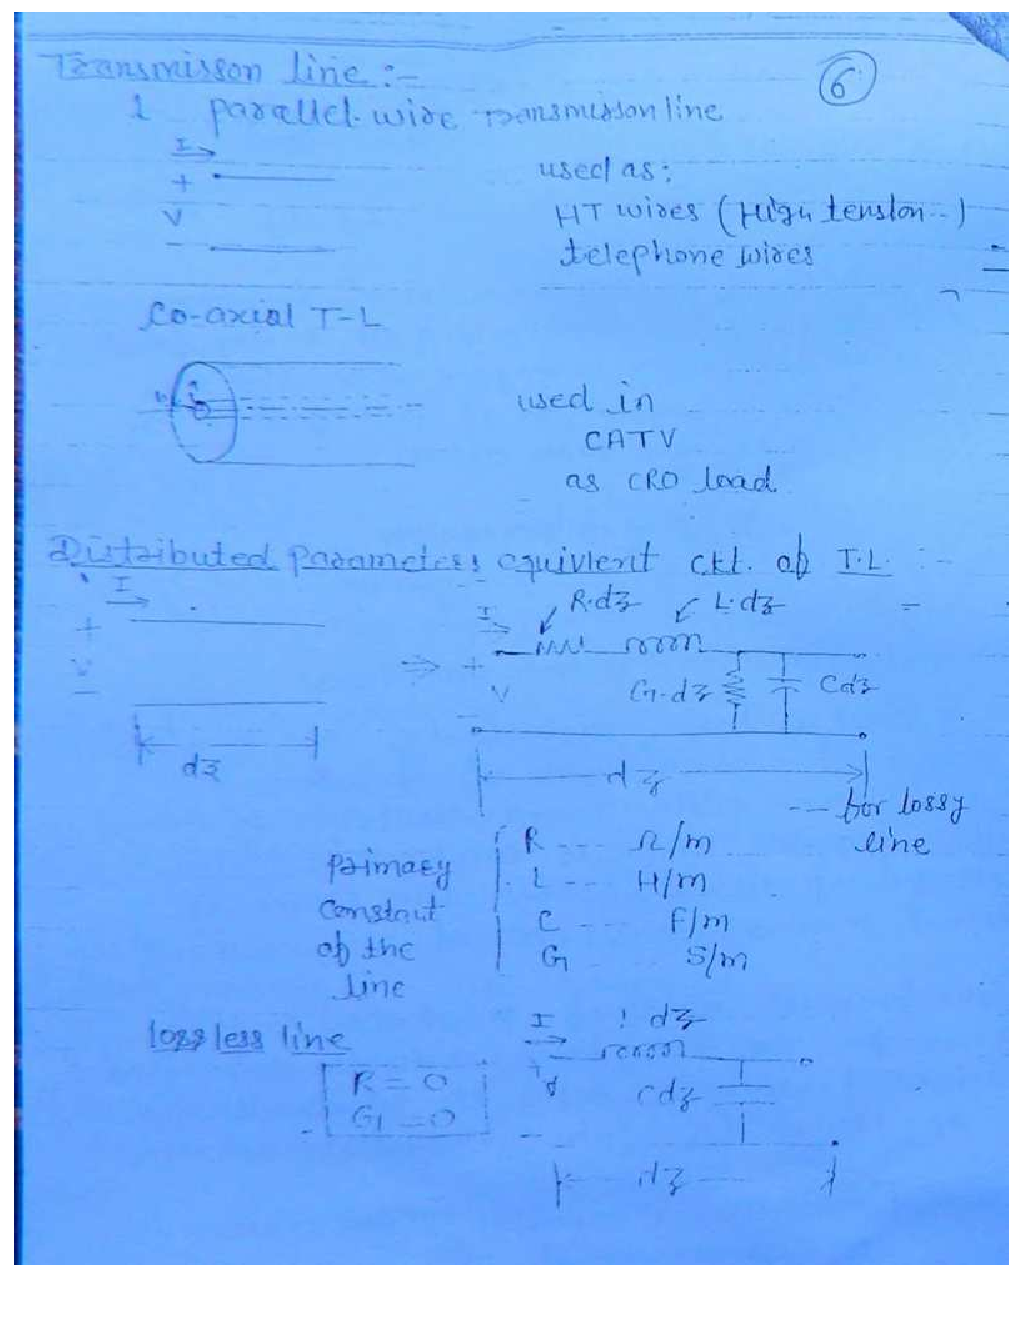 Transmisson line :-
6
1 parallel wire Transmisson line
I
+
V
-
used as:
HT wires (High tension--)
telephone wires
Co-axial T-L
used in
CATV
as CRO load
Distributed parameters equivlent ckt. of T.L. :-
I
+
V
-
dz
I
R.dz
L.dz
+
V
-
G.dz
Cdz
dz
--- for lossy
line
primary
constant
of the
line
R --- Ω/m
L --- H/m
C --- F/m
G S/m
loss less line
R = 0
G = 0
I
dz
+
Cdz
-
dz